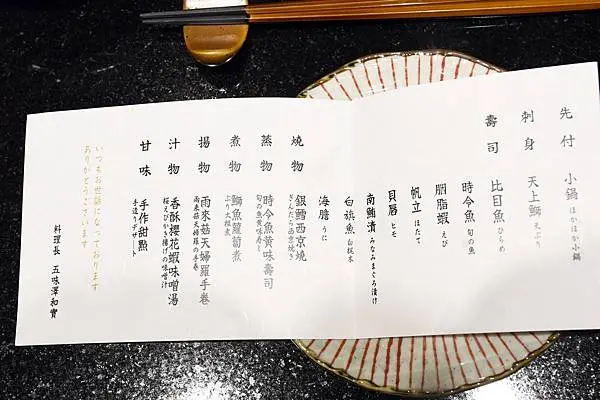 先付 小鍋 ほかほか小鍋
刺身 天上鰤 天ぶり
壽司 比目魚 ひらめ
時令魚 旬の魚
胭脂蝦 えび
帆立 ほたて
貝唇 ヒモ
南鮪漬 みなみまぐろ漬け
白旗魚 白梶木
海膽 うに
燒物 銀鱈西京燒
ぎんだら西京焼き
蒸物 時令魚黃味壽司
旬の魚黄味寿し
煮物 鰤魚蘿蔔煮
ぶり大根煮
揚物 雨來菇天婦羅手卷
雨來菇天婦羅の手卷
汁物 香酥櫻花蝦味噌湯
桜えびかき揚げの味噌汁
甘味 手作甜點
手造りデザート
いつもお世話になっております
ありがとうございます
料理長 五味澤和實